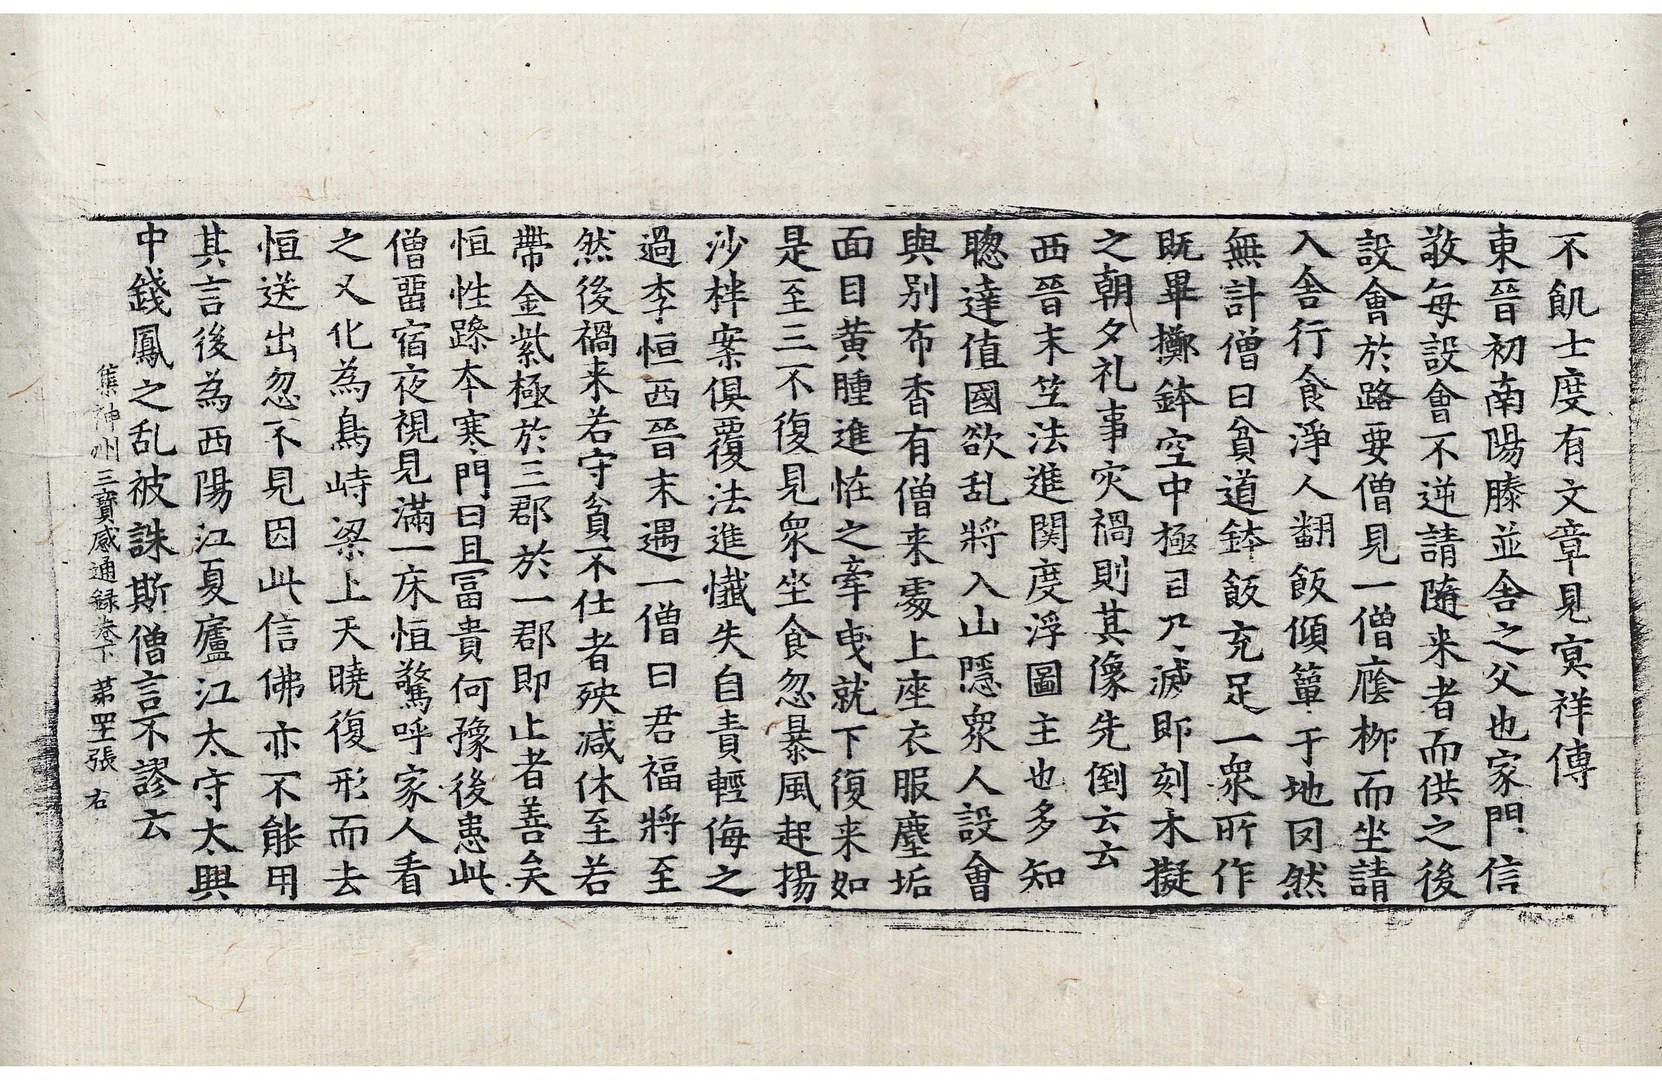 不飢士度有文章見冥祥傳
東晉初南陽滕並舍之父也家門信
敬每設會不逆請隨来者而供之後
設會於路要僧見一僧廕栁而坐請
入舍行食淨人翻飯傾簞于地罔然
無計僧曰貧道鉢飯充足一衆所作
既畢擲鉢空中極目乃滅即刻木擬
之朝夕礼事灾禍則其像先倒云云
西晉末竺法進開度浮圖主也多知
聰達值國欲乱將入山隱衆人設會
與別布香有僧来處上座衣服塵垢
面目黄腫進恠之牽曳就下復来如
是至三不復見衆坐食忽暴風起揚
沙柈案俱覆法進懺失自責輕侮之
過李恒西晉末遇一僧曰君福將至
然後禍来若守貧不仕者殃减休至若
帶金紫極於三郡於一郡即止者善矣
恒性躁本寒門曰且冨貴何豫後患此
僧畱宿夜視見滿一床恒驚呼家人看
之又化為鳥峙梁上天曉復形而去
恒送出忽不見因此信佛亦不能用
其言後為西陽江夏廬江太守太興
中錢鳳之乱被誅斯僧言不謬云
集神州三寳感通録卷下 苐罒張 右